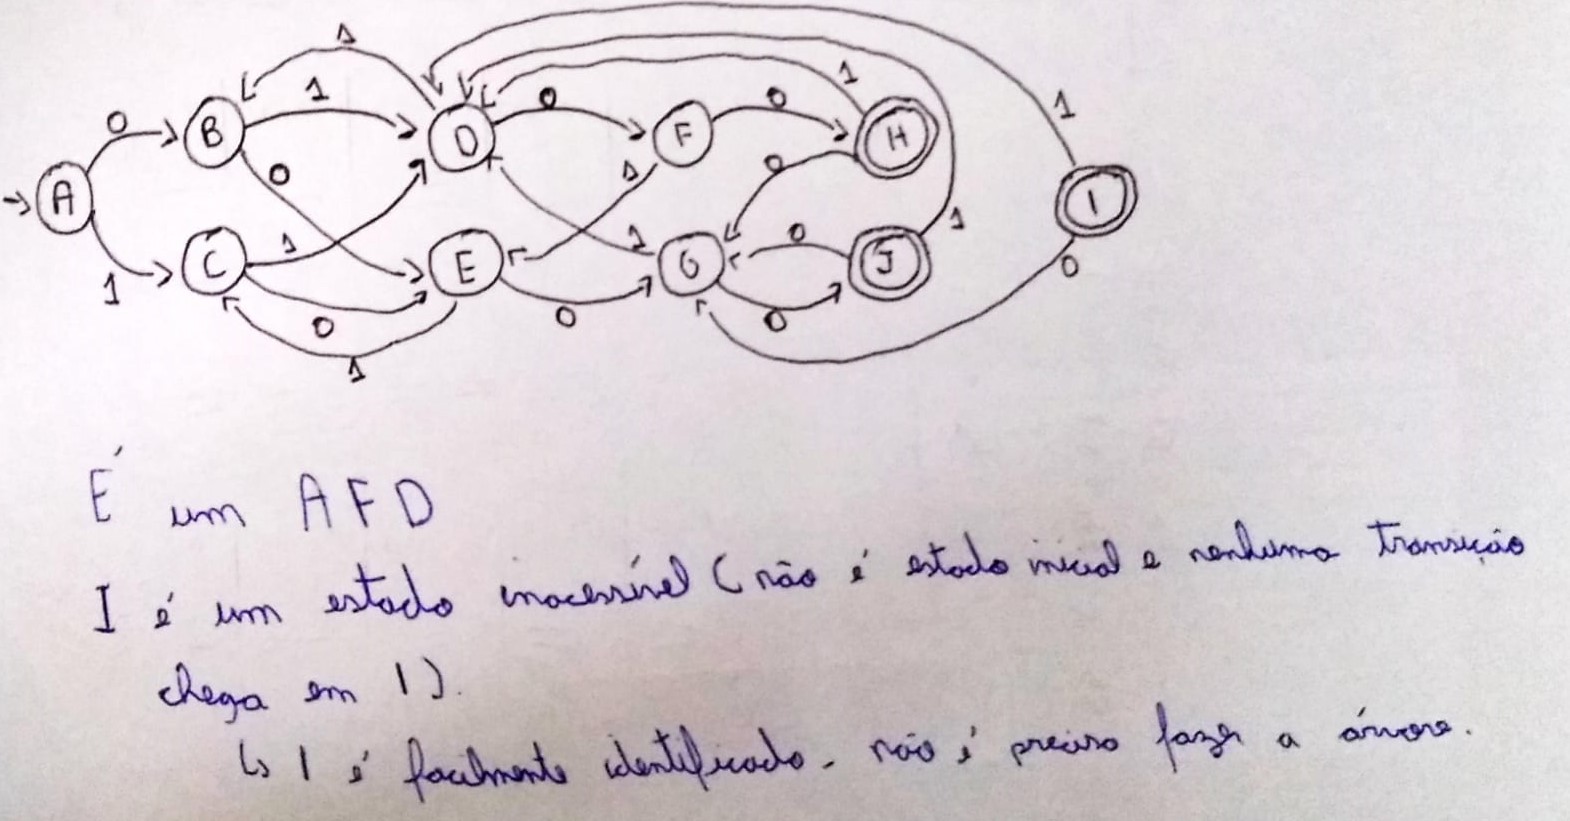 1
0 B 1 D 0 F 0 H 1 1
A 0 1 0 I
1 C 1 E 1 G 0 J 1
0 0 0 0
1
É um AFD
I é um estado inacessível (não é estado inicial e nenhuma transição
chega em I).
↳ I é facilmente identificado. não é preciso fazer a árvore.